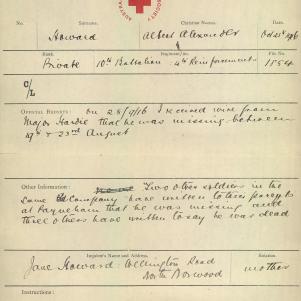 AUSTRA
SOCIETY
No. Surname. Christian Names. Date.
Howard Albert Alexander Oct 21st 1916
Rank. Regiment. File No.
Private 10th Battalion 4th Reinforcements 1554
C/L
OFFICIAL REPORTS: On 28/9/16 I received wire from
Major Hardie that he was missing between
19th & 23rd August
Other Information: Two other soldiers in the
same Company have written to their people
at Payneham that he was missing and
three others have written to say he was dead
Inquirer's Name and Address. Relation.
Jane Howard Wellington Road mother
North Norwood
Instructions: